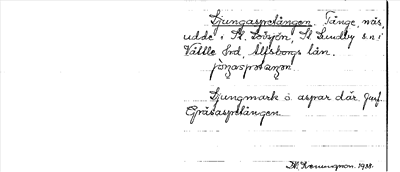 Ljungaspetången. Tånge, näs,
udde i St. Lövsjön, St. Lundby sn i
Vättle hd, Älfsborgs län.
jöŋaspetaŋən
Ljungmark o. aspar där. Jmf.
Gräsaspetången.
1938.